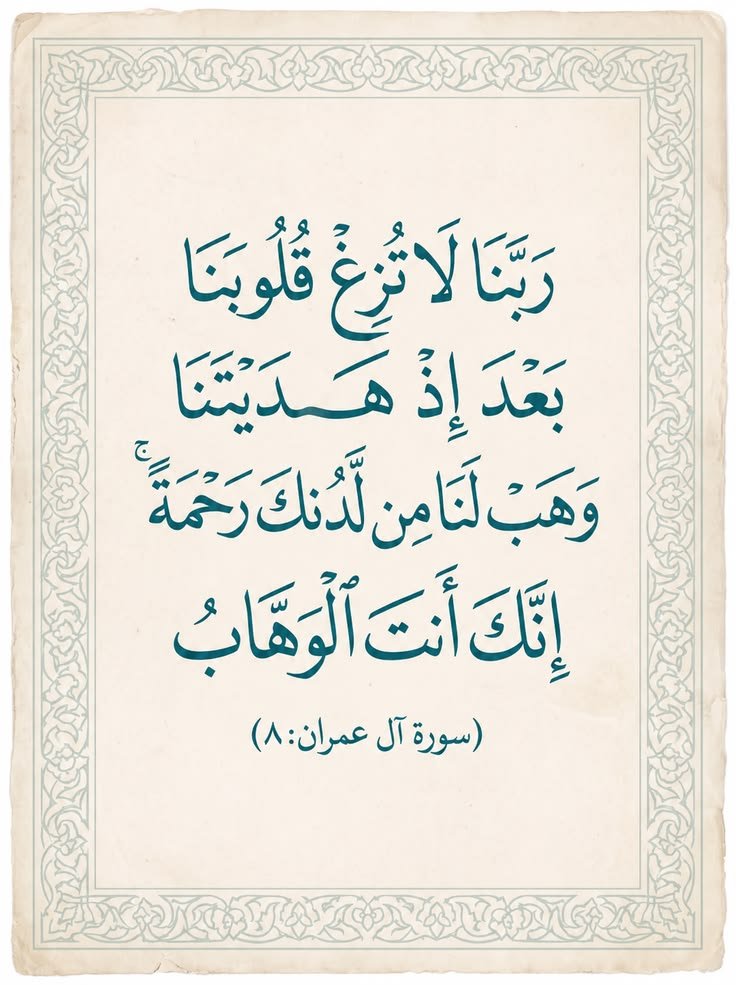 رَبَّنَا لَا تُزِغْ قُلُوبَنَا
بَعْدَ إِذْ هَـــدَيْتَنَا
وَهَبْ لَنَا مِن لَّدُنكَ رَحْمَةً ۚ
إِنَّكَ أَنتَ ٱلْوَهَّابُ
(سورة آل عمران: ٨)